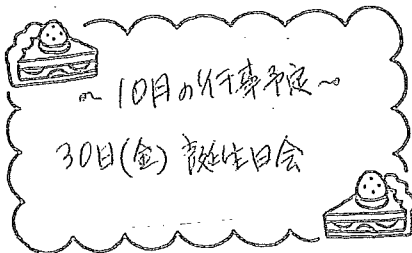 ～10月の行事予定～
30日(金) 誕生日会